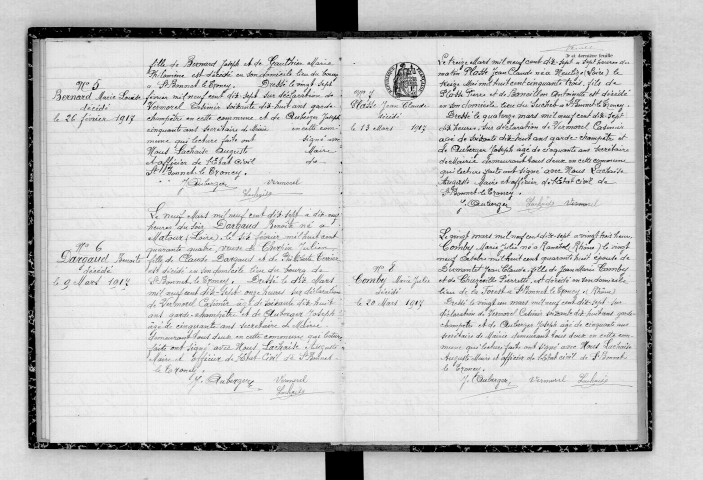 N° 5
Bernard Marie Louise
décédé
le 26 février 1917
fille de Bernard Joseph et de Gauthier Marie
Philomène est décédé en son domicile lieu du bourg
à St Bonnet le Troncy. Dressé le vingt sept
février mil neuf cent dix sept sur déclaration de
Vermorel Casimir soixante dix huit ans garde
champêtre en cette commune et de Auberger Joseph
cinquante ans secrétaire de Mairie en cette com-
mune qui lecture faite ont signé avec
Nous Lachaize Auguste Maire
et officier de l'Etat Civil de
St Bonnet le Troncy.
J. Auberger Vermorel
Lachaize
N° 6
Dargaud Benoite
décédé
le 9 Mars 1917
Le neuf Mars mil neuf cent dix sept à dix
heures du soir Dargaud Benoite né à
Matour (Loire), le dix février mil huit cent
quarante quatre, veuve de Julien
fille de Claude Dargaud et de
est décédé en son domicile lieu du bourg de
St Bonnet le Troncy. Dressé le dix Mars
mil neuf cent dix sept onze heures sur déclaration
de Vermorel Casimir âgé de soixante dix huit
ans garde champêtre et de Auberger Joseph
âgé de cinquante ans secrétaire de Mairie
demeurant tous deux en cette commune que lecture
faite ont signé avec Nous Lachaize Auguste
Maire et officier de l'Etat Civil de St Bonnet
le Troncy.
J. Auberger Vermorel
Lachaize
et dernière feuille
N° 7
Plasse Jean Claude
décédé
le 13 Mars 1917
Le treize Mars mil neuf cent dix sept à sept heures du
matin Plasse Jean Claude né à (Loire) le
treize Mars mil huit cent cinquante trois, fils de
Plasse Pierre et de Antoinette est décédé
en son domicile, lieu du à St Bonnet le Troncy.
Dressé le quatorze mars mil neuf cent dix sept
dix heures, sur déclaration de Vermorel Casimir
âgé de soixante dix huit ans, garde champêtre et
de Auberger Joseph âgé de cinquante ans secrétaire
de Mairie demeurant tous deux en cette commune
qui lecture faite ont signé avec Nous Lachaize
Auguste Maire et officier de l'Etat civil de
St Bonnet le Troncy.
J. Auberger Lachaize Vermorel
N° 8
Comby Marie Julie
décédé
le 20 Mars 1917
Le vingt mars mil neuf cent dix sept à vingt trois heures
Comby Marie Julie né à Ranchal (Rhône) le vingt
neuf octobre mil huit cent quarante huit épouse de
Jean Claude, fille de Jean Marie Comby
et de Pierrette, est décédé en son domicile
lieu de la Forest à St Bonnet le Troncy (Rhône)
Dressé le vingt un mars mil neuf cent dix sept sur
déclaration de Vermorel Casimir soixante dix huit ans garde
champêtre et de Auberger Joseph âgé de cinquante ans
secrétaire de Mairie demeurant tous deux en cette com-
mune qui lecture faite ont signé avec Nous Lachaize
Auguste Maire et officier de l'Etat civil de St Bonnet
le Troncy.
J. Auberger Vermorel Lachaize